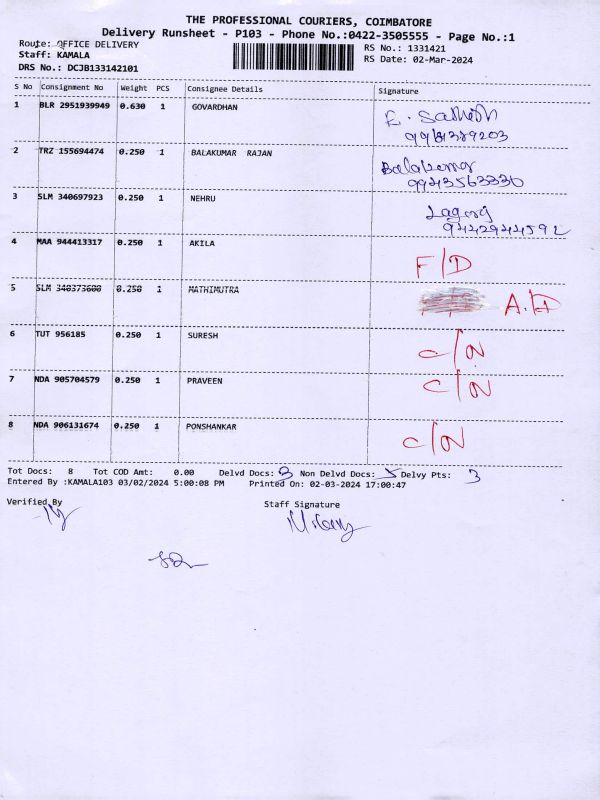 THE PROFESSIONAL COURIERS, COIMBATORE
Delivery Runsheet - P103 - Phone No.:0422-3505555 - Page No.:1
Route: OFFICE DELIVERY
Staff: KAMALA
DRS No.: DCJB133142101
RS No.: 1331421
RS Date: 02-Mar-2024
S No Consignment No Weight PCS Consignee Details Signature
1 BLR 2951939949 0.630 1 GOVARDHAN E. Sathish
2 TRZ 155694474 0.250 1 BALAKUMAR RAJAN Balakumar
9943563330
3 SLM 340697923 0.250 1 NEHRU
4 MAA 944413317 0.250 1 AKILA F/D
5 SLM 340373600 0.250 1 MATHIMUTRA A.D
6 TUT 956185 0.250 1 SURESH C/N
7 NDA 905704579 0.250 1 PRAVEEN C/N
8 NDA 906131674 0.250 1 PONSHANKAR C/N
Tot Docs: 8 Tot COD Amt: 0.00 Delvd Docs: 3 Non Delvd Docs: 5 Delvy Pts: 3
Entered By :KAMALA103 03/02/2024 5:00:08 PM Printed On: 02-03-2024 17:00:47
Verified By
Staff Signature